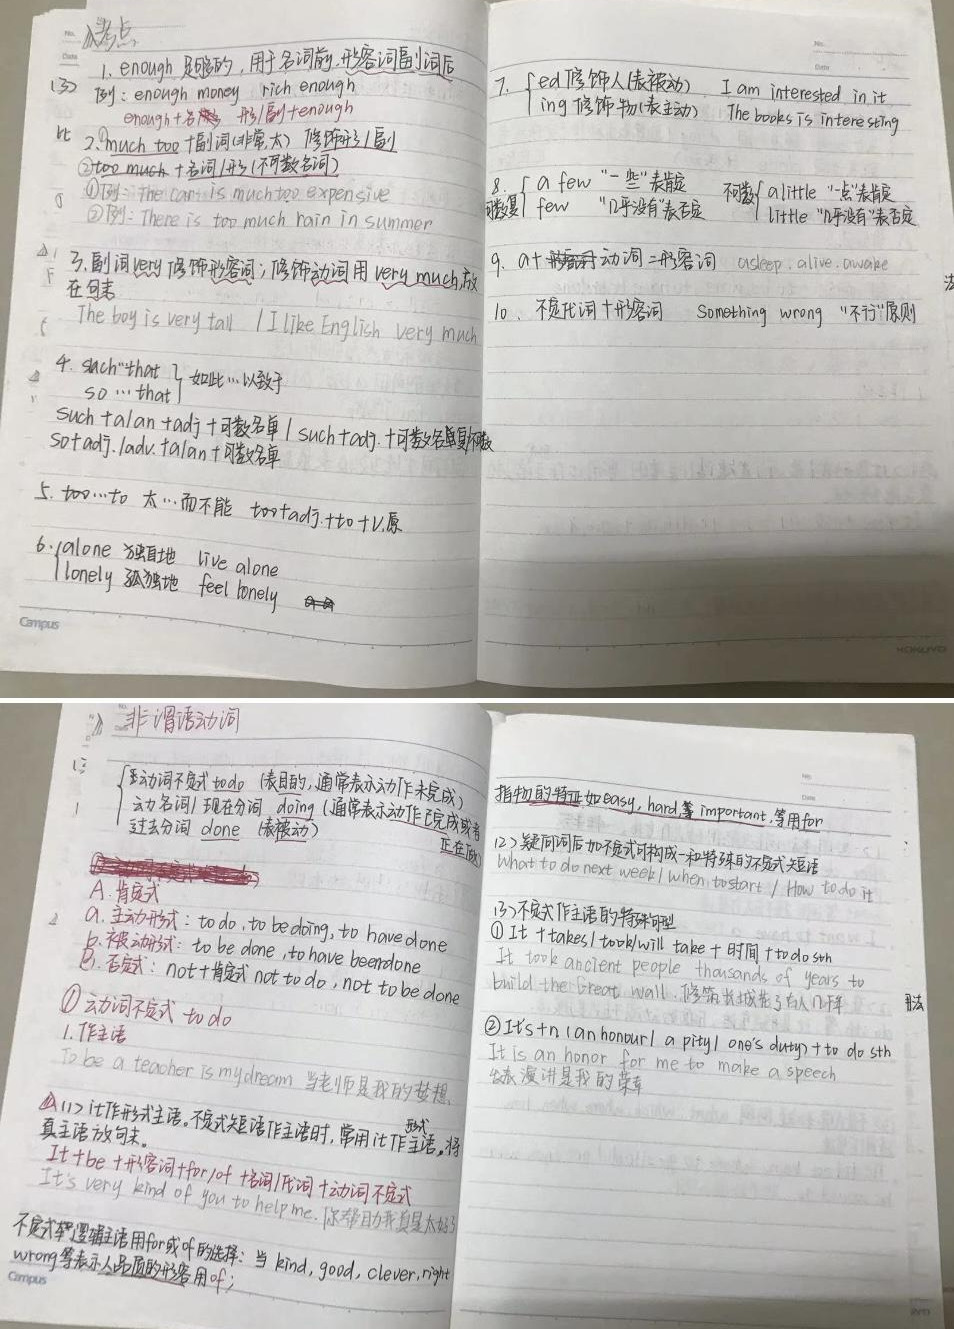 考点
1. enough 足够的，用于名词前，形容词副词后
例：enough money rich enough
enough+名 形/副+enough
2.①much too+副词(非常,太) 修饰形/副
②too much+名词/形(不可数名词)
①例：The car is much too expensive
②例：There is too much rain in summer
3.副词very修饰形容词；修饰动词用very much,放
在句末
The boy is very tall / I like English very much
4. such…that
so…that } 如此…以致于
such+a/an+adj+可数名单/such+adj.+可数名单复/不可数
so+adj./adv.+a/an+可数名单
5. too…to 太…而不能 too+adj.+to+v.原
6. alone 独自地 live alone
lonely 孤独地 feel lonely
Campus
No.
Date
7. { ed修饰人(表被动) I am interested in it
ing修饰物(表主动) The books is interesting
8. { a few “一些”表肯定 不可数 { a little “一点”表肯定
可数复 few “几乎没有”表否定 little “几乎没有”表否定
9. a+动词=形容词 asleep.alive.awake
10. 不定代词+形容词 Something wrong “不行”原则
KOKUYO
非谓语动词
动词不定式 to do (表目的,通常表示动作未完成)
动名词/现在分词 doing(通常表示动作已完成或者
正在做)
过去分词 done (表被动)
A.肯定式
a.主动形式：to do, to be doing, to have done
b.被动形式：to be done, to have been done
B.否定式：not+肯定式 not to do, not to be done
① 动词不定式 to do
1.作主语
To be a teacher is my dream 当老师是我的梦想.
(1)> it作形式主语。不定式短语作主语时，常用it作形式主语。将
真主语放句末。
It+be+形容词+for/of+名词/代词+动词不定式
It's very kind of you to help me. 你帮助我真是太好了
不定式逻辑主语用for或of的选择：当 kind, good, clever, right
wrong等表示人品质的形容用of；
Campus
Date
指物的特征如easy, hard, important,等用for
(2)>疑问词后加不定式可构成一种特殊的不定式短语
What to do next week / when to start / How to do it
(3)>不定式作主语的特殊句型
① It+takes/took/will take+时间+to do sth
It took ancient people thousands of years to
build the Great wall. 修筑长城花了古人几千年
② It's+n(an honour/ a pity/ one's duty)+to do sth
It is an honor for me to make a speech
发表演讲是我的荣幸